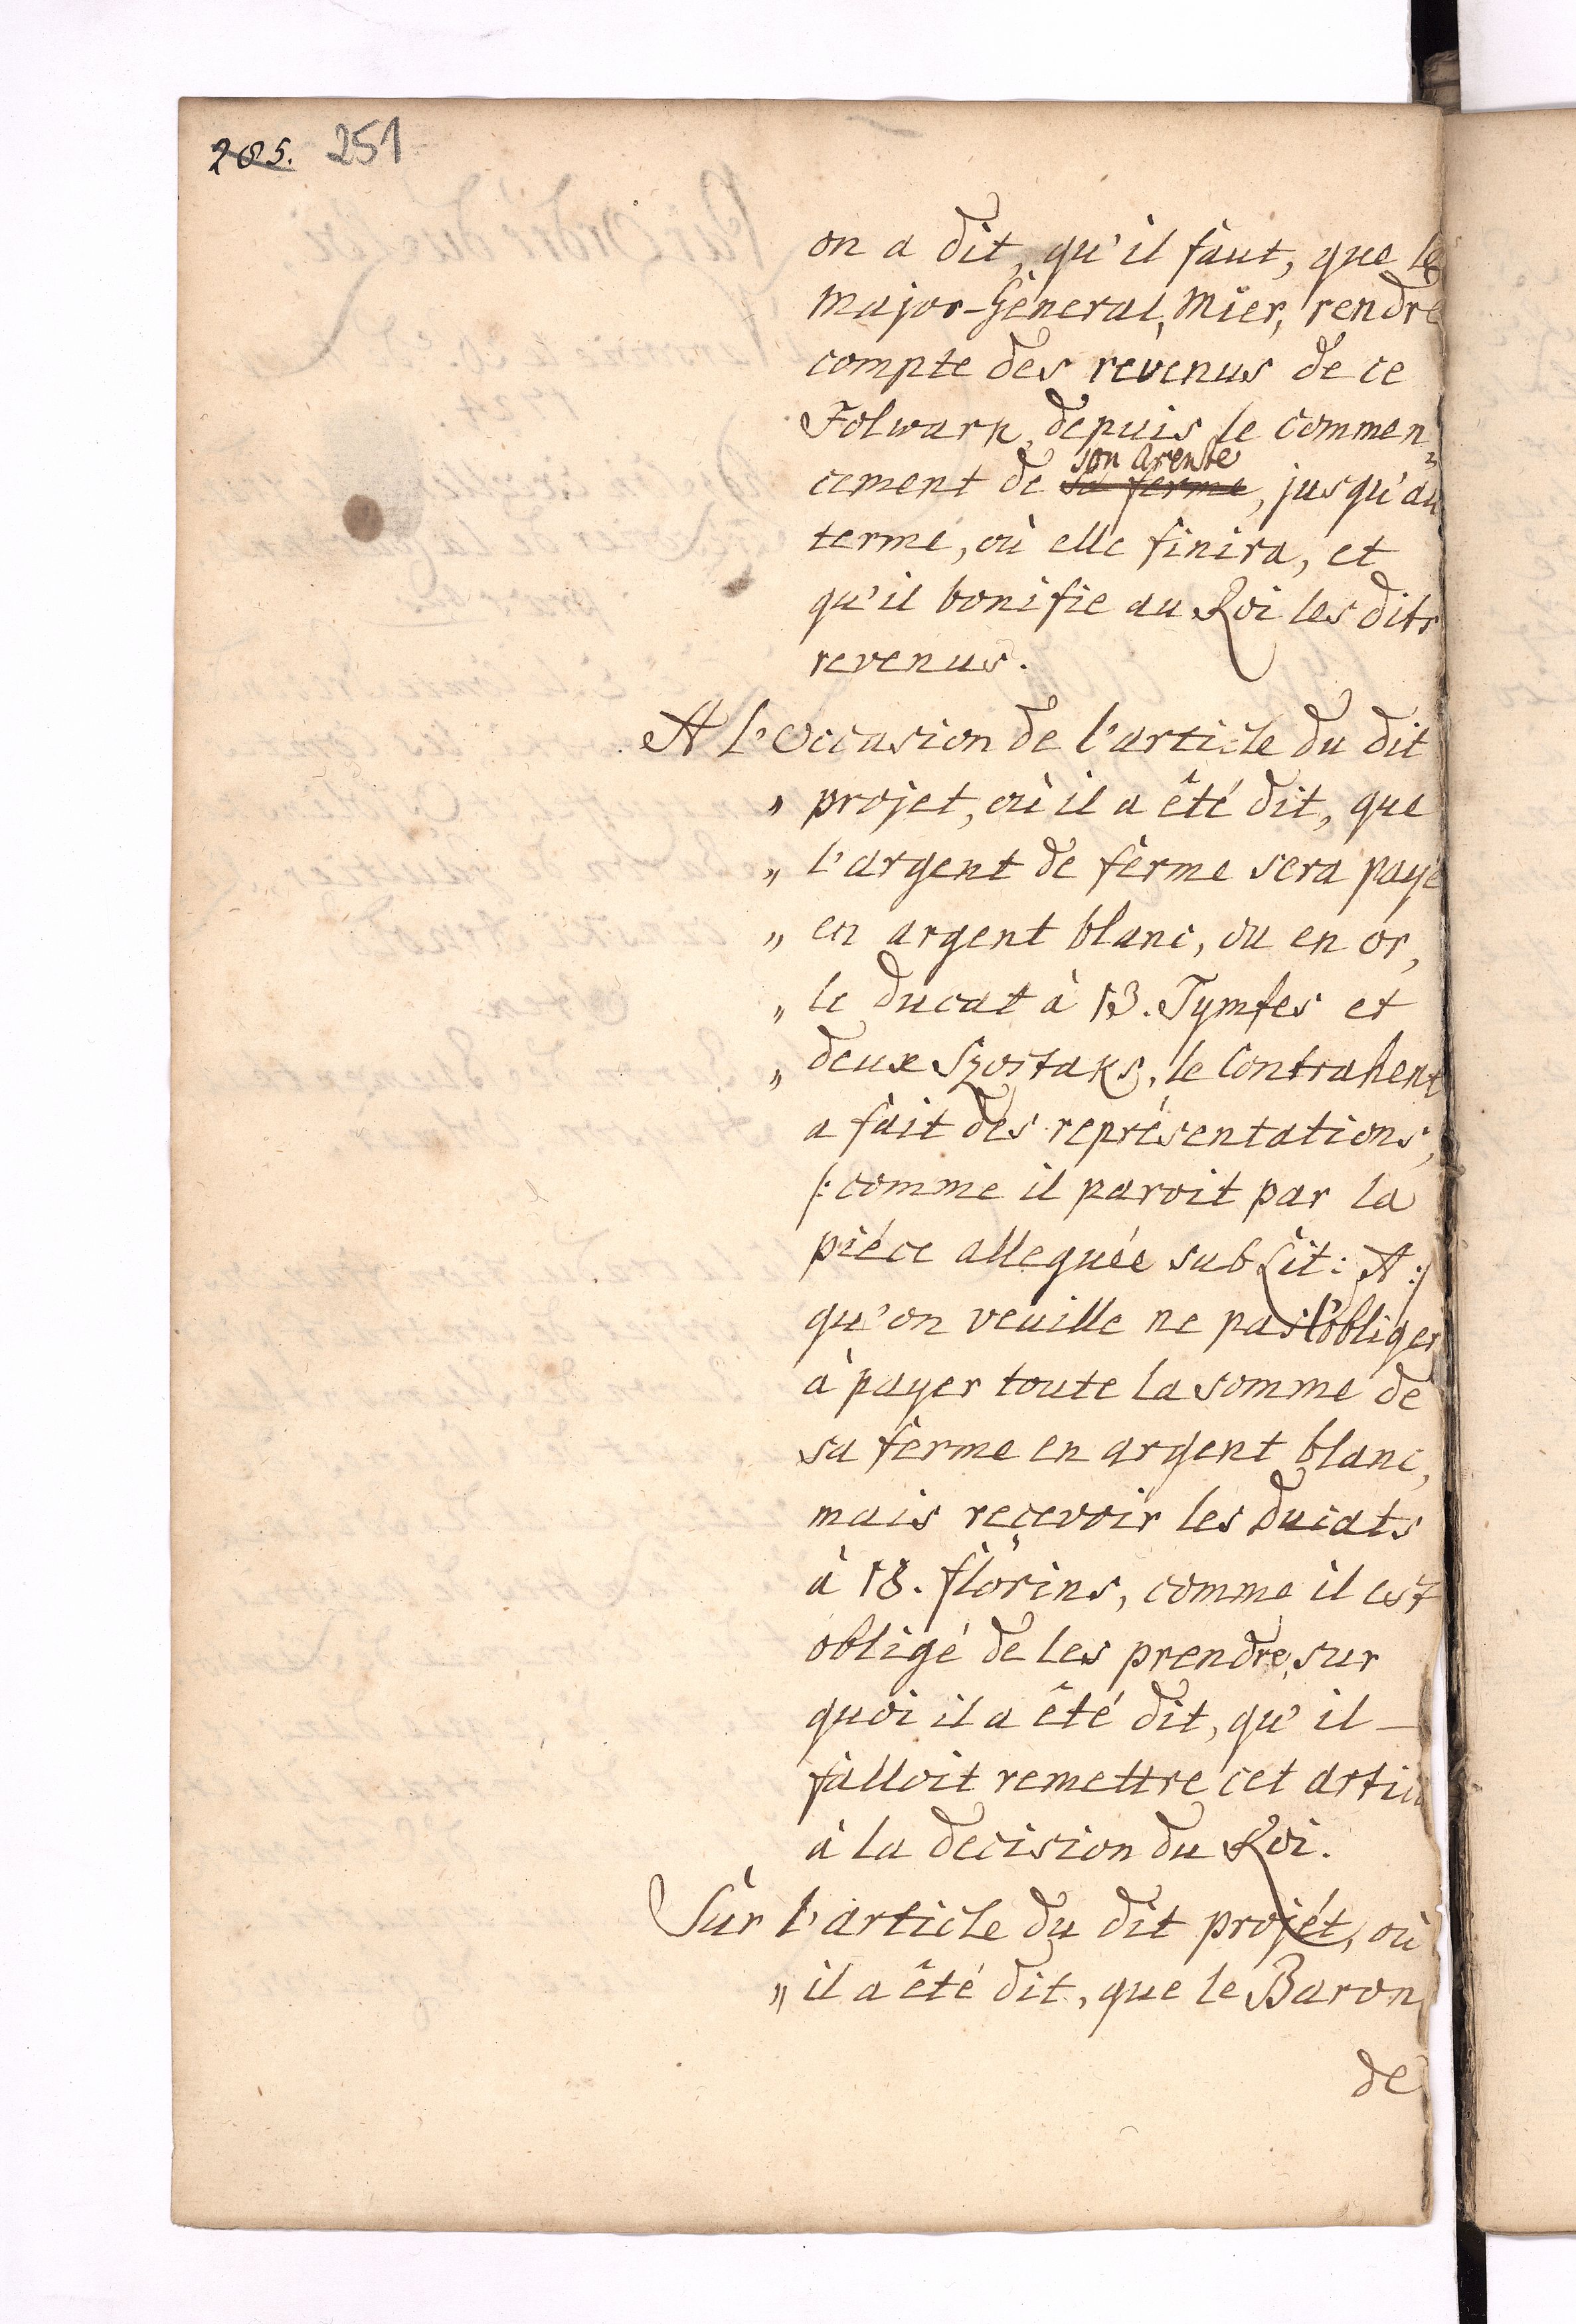 205. 251
on a dit, qu'il faut, que le
Major-Géneral, Mier, rendre
compte des revenus de ce
Folwark, depuis le commen=
son arente
cement de sa ferme, jusqu'au
terme, où elle finira, et
qu'il bonifie au Roi les dits
revenus.
A l'Occasion de l'article du dit
" projet, où il a êté dit, que
" l'argent de ferme sera payé
" en argent blanc, ou en or,
" le ducat à 13. Tymfes et
" deux Szostaks, le Contrahent
a fait des représentations,
/: comme il paroit par la
piéce alleguée sub Lit: A :/
qu'on veuille ne pas l'obliger
à payer toute la somme de
sa ferme en argent blanc,
mais reçevoir les ducats
à 18. florins, comme il est
obligé de les prendre, sur
quoi il a êté dit, qu'il
falloit remettre cet artic
à la decision du Roi.
Sur l'article du dit projét, où
" il a êté dit, que le Baron
de